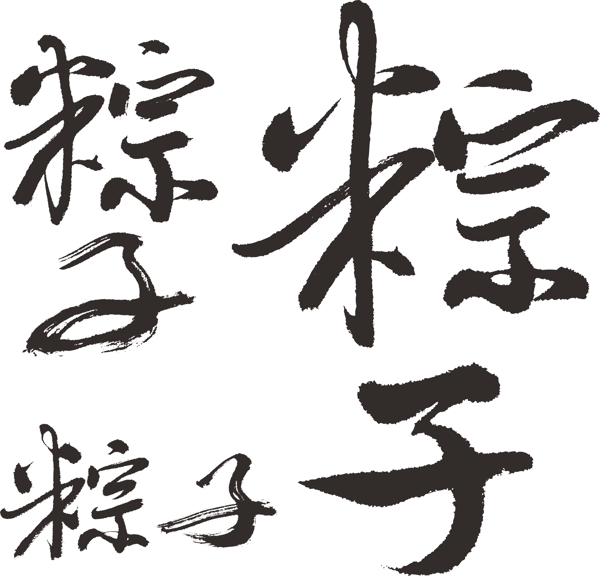 粽子
粽子
粽子